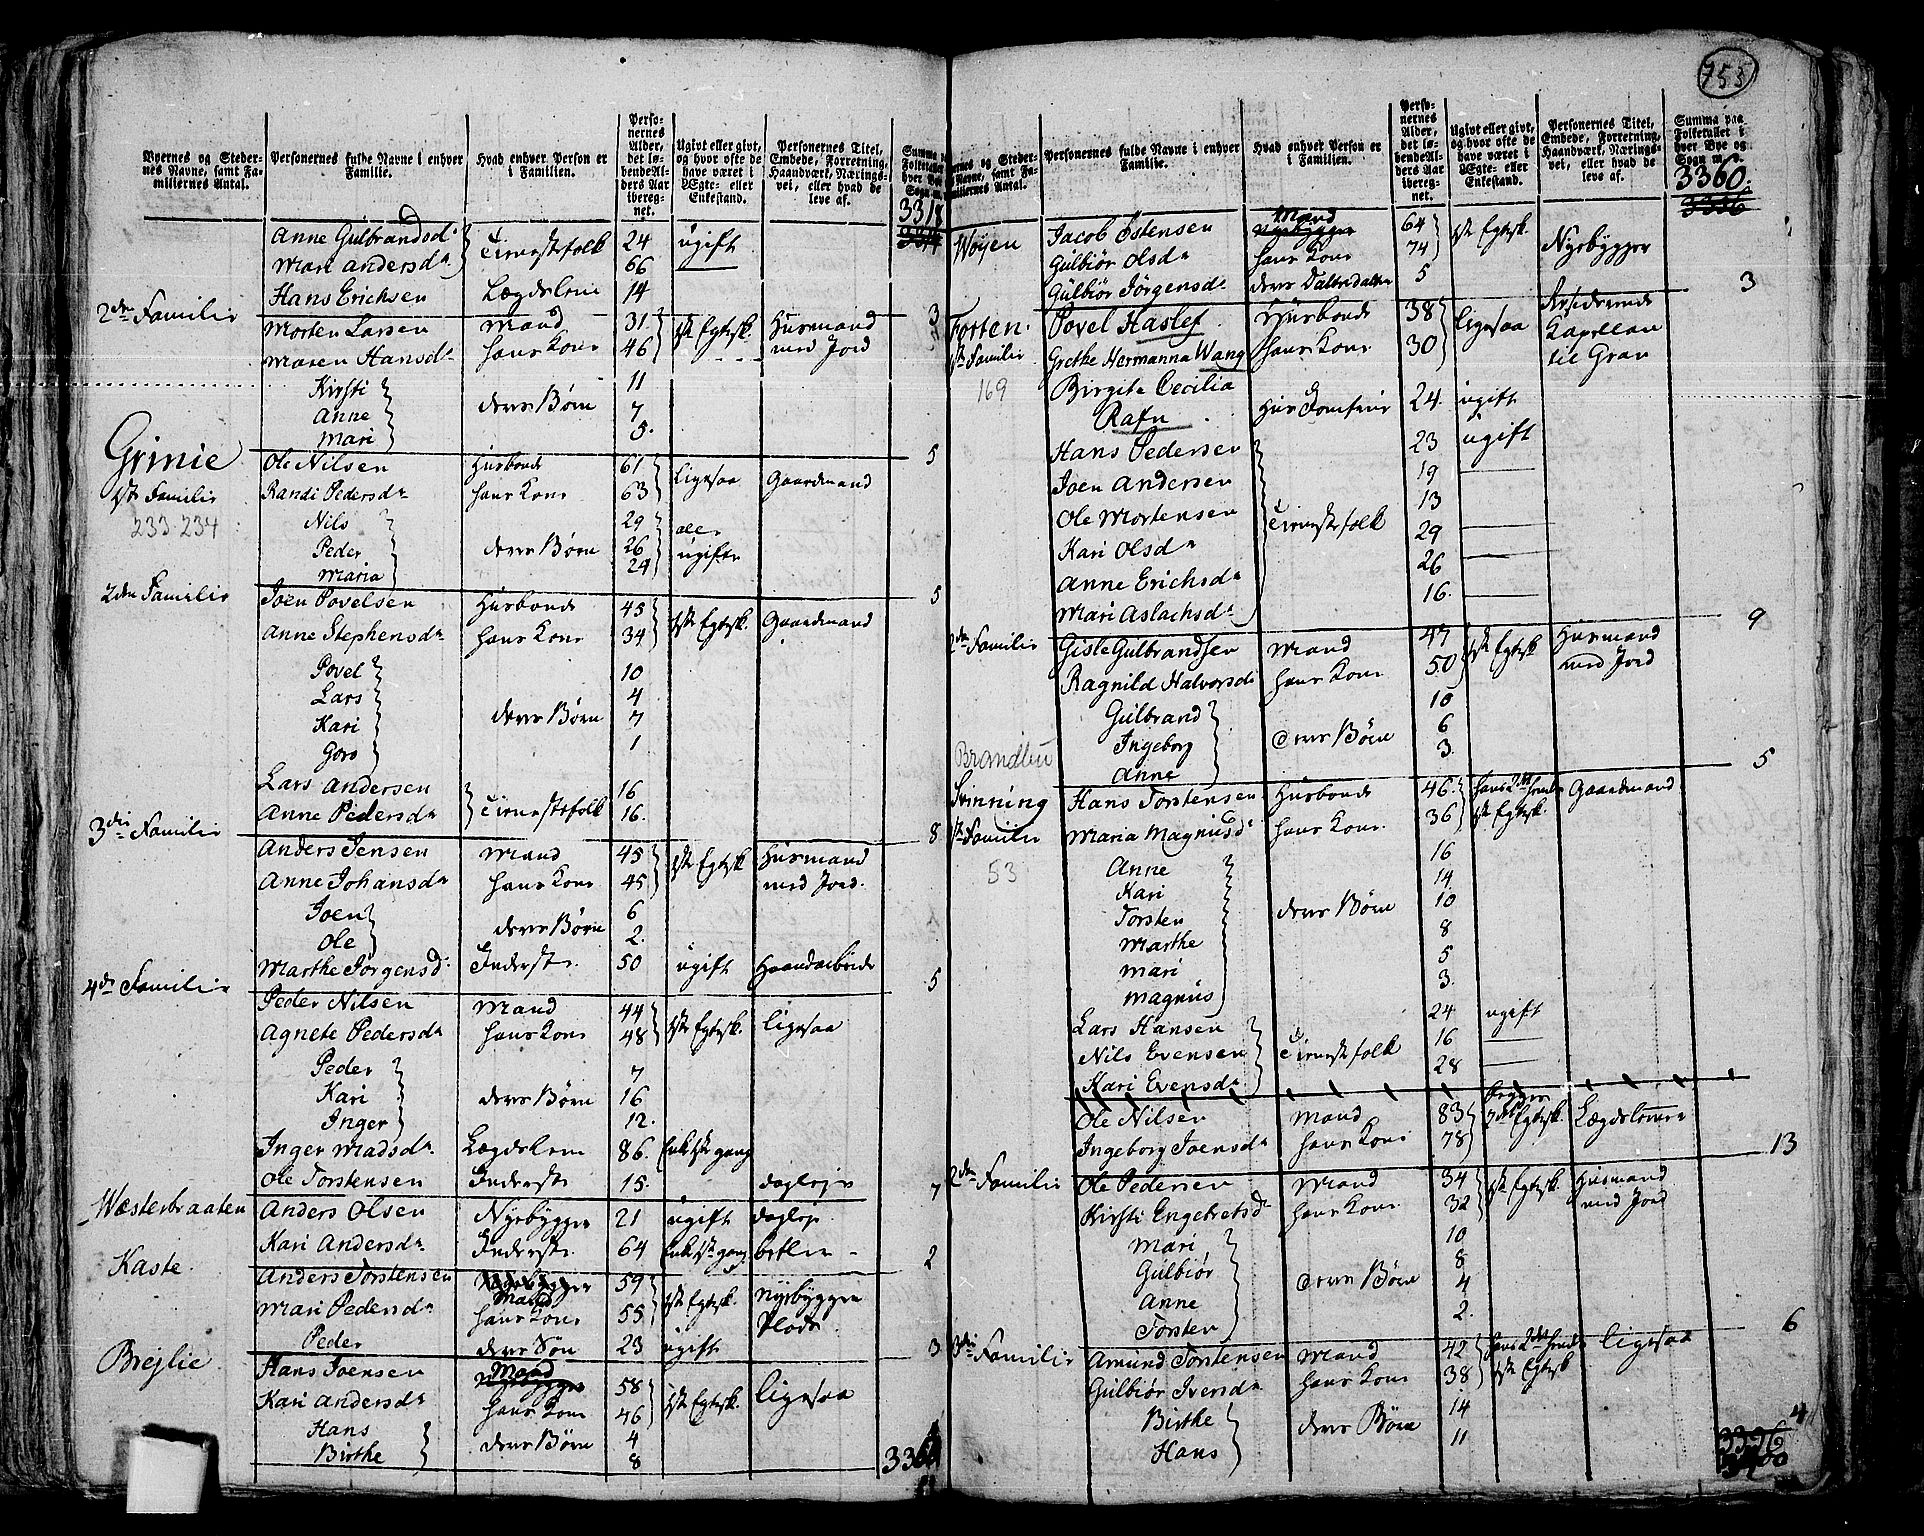 755
Byernes og Stedernes Navne, samt Familiernes Antal.
Personernes fulde Navne i enhver Familie.
Hvad enhver Person er i Familien.
Personernes Alder, det løbende Alders Aar iberegnet.
Ugivt eller givt, og hvor ofte de have været i Ægte- eller Enkestand.
Personernes Titel, Embede, Forretning, Haandværk, Næringsvei, eller hvad de leve af.
3318
Anne Gulbrandsdr 24 ugift
Mari Andersdr Tienestefolk 66
Hans Erichsen Lægdslem 14
3
2den Familie Morten Larsen Mand 31 1ste Egtesk. Huusmand
Maren Hansdr hans Kone 46 med Jord
Kirsti 11
Anne deres Børn 7
Mari 5
5
Grinie Ole Nilsen Husbonde 61 ligesaa Gaardmand
1ste Familie Randi Pedersdr hans Kone 63
233-234 Nils 29 alle
Peder deres Børn 26 ugifte
Maria 24
5
2den Familie Joen Povelsen Husbonde 45 1ste Egtesk. Gaardmand
Anne Stephensdr hans Kone 34
Povel 10
Lars 4
Kari deres Børn 7
Goro 1
Lars Andersen 16
Anne Pedersdr Tienestefolk 16
8
3die Familie Anders Jensen Mand 45 1ste Egtesk. Huusmand
Anne Johansdr hans Kone 45 med Jord
Joen 6
Ole deres Børn 2
Marthe Jørgensd Inderste 50 ugift Haandarbeide
5
4de Familie Peder Nilsen Mand 44 1ste Egtesk. ligesaa
Agnete Pedersdr hans Kone 48
Peder 7
Kari deres Børn 16
Inger 12
Inger Madsdr Lægdslem 86 Enke 1ste gang
Ole Torstensen Inderste 15 dagleje
7
Wæsterbraaten Anders Olsen Nyebygger 21 ugift dagleje
Kari Andersdr Inderste 64 Enke 1ste gang betler
2
Kaste Anders Torstensen Mand 59 1ste Egtesk. Nyebygger
Mari Pedersdr hans Kone 55 Plads
Peder deres Søn 23 ugift
3
Brejlie Hans Joensen Mand 58 1ste Egtesk. ligesaa
Kari Andersdr hans Kone 46
Hans deres Børn 4
Birthe 8
4
3360
Byernes og Stedernes Navne, samt Familiernes Antal.
Personernes fulde Navne i enhver Familie.
Hvad enhver Person er i Familien.
Personernes Alder, det løbende Alders Aar iberegnet.
Ugivt eller givt, og hvor ofte de have været i Ægte- eller Enkestand.
Personernes Titel, Embede, Forretning, Haandværk, Næringsvei, eller hvad de leve af.
Summa paa Folketallet i hver Bye og Sogn m. v.
3360
Wøyen Jacob Østensen Mand 64 1ste Egtesk. Nyebygger
Gulbiør Olsdr hans Kone 74
Gulbiør Jørgensdr deres Datterdatter 5
3
Torten Povel Haslef Husbonde 38 ligesaa Residerende
1ste Familie Grethe Hermanna Wang hans Kone 30 Kapellan
169 Birgite Cecilia til Gran
Rafn Huus Jomfrue 24 ugift
Hans Pedersen 23 ugift
Joen Andersen 19
Ole Mortensen 13
Kari Olsdr Tienestefolk 29
Anne Erichsdr 26
Mari Aslachsdr 16
9
2den Familie Gisle Gulbrandsen Mand 47 1ste Egtesk Huusmand
Ragnild Halvorsdr hans Kone 50 med Jord
Gulbrand 10
Ingeborg deres Børn 6
Anne 3
5
Brandbu
Svinning Hans Torstensen Husbonde 46 hans 2det hendes Gaardmand
1ste Familie Maria Magnusd hans Kone 36 1ste Egtesk.
53 Anne 16
Kari 14
Torsten deres Børn 10
Marthe 8
Mari 5
Magnus 3
Lars Hansen 24 ugift
Nils Evensen Tienestefolk 16
Kari Evensdr 28
Ole Nilsen Mand 83 Begge 2det Egtesk. Lægdslemmer
Ingeborg Joensdr hans Kone 78
13
2den Familie Ole Pedersen Mand 34 1ste Egtesk. Huusmand
Kirsti Engebretsdr hans Kone 32 med Jord
Mari 10
Gulbiør 8
Anne deres Børn 4
Torsten 2
6
3die Familie Amund Torstensen Mand 42 hans 2det hendes ligesaa
Gulbiør Iversdr hans Kone 38 1ste Egtesk
Birthe deres Børn 14
Hans 11
4